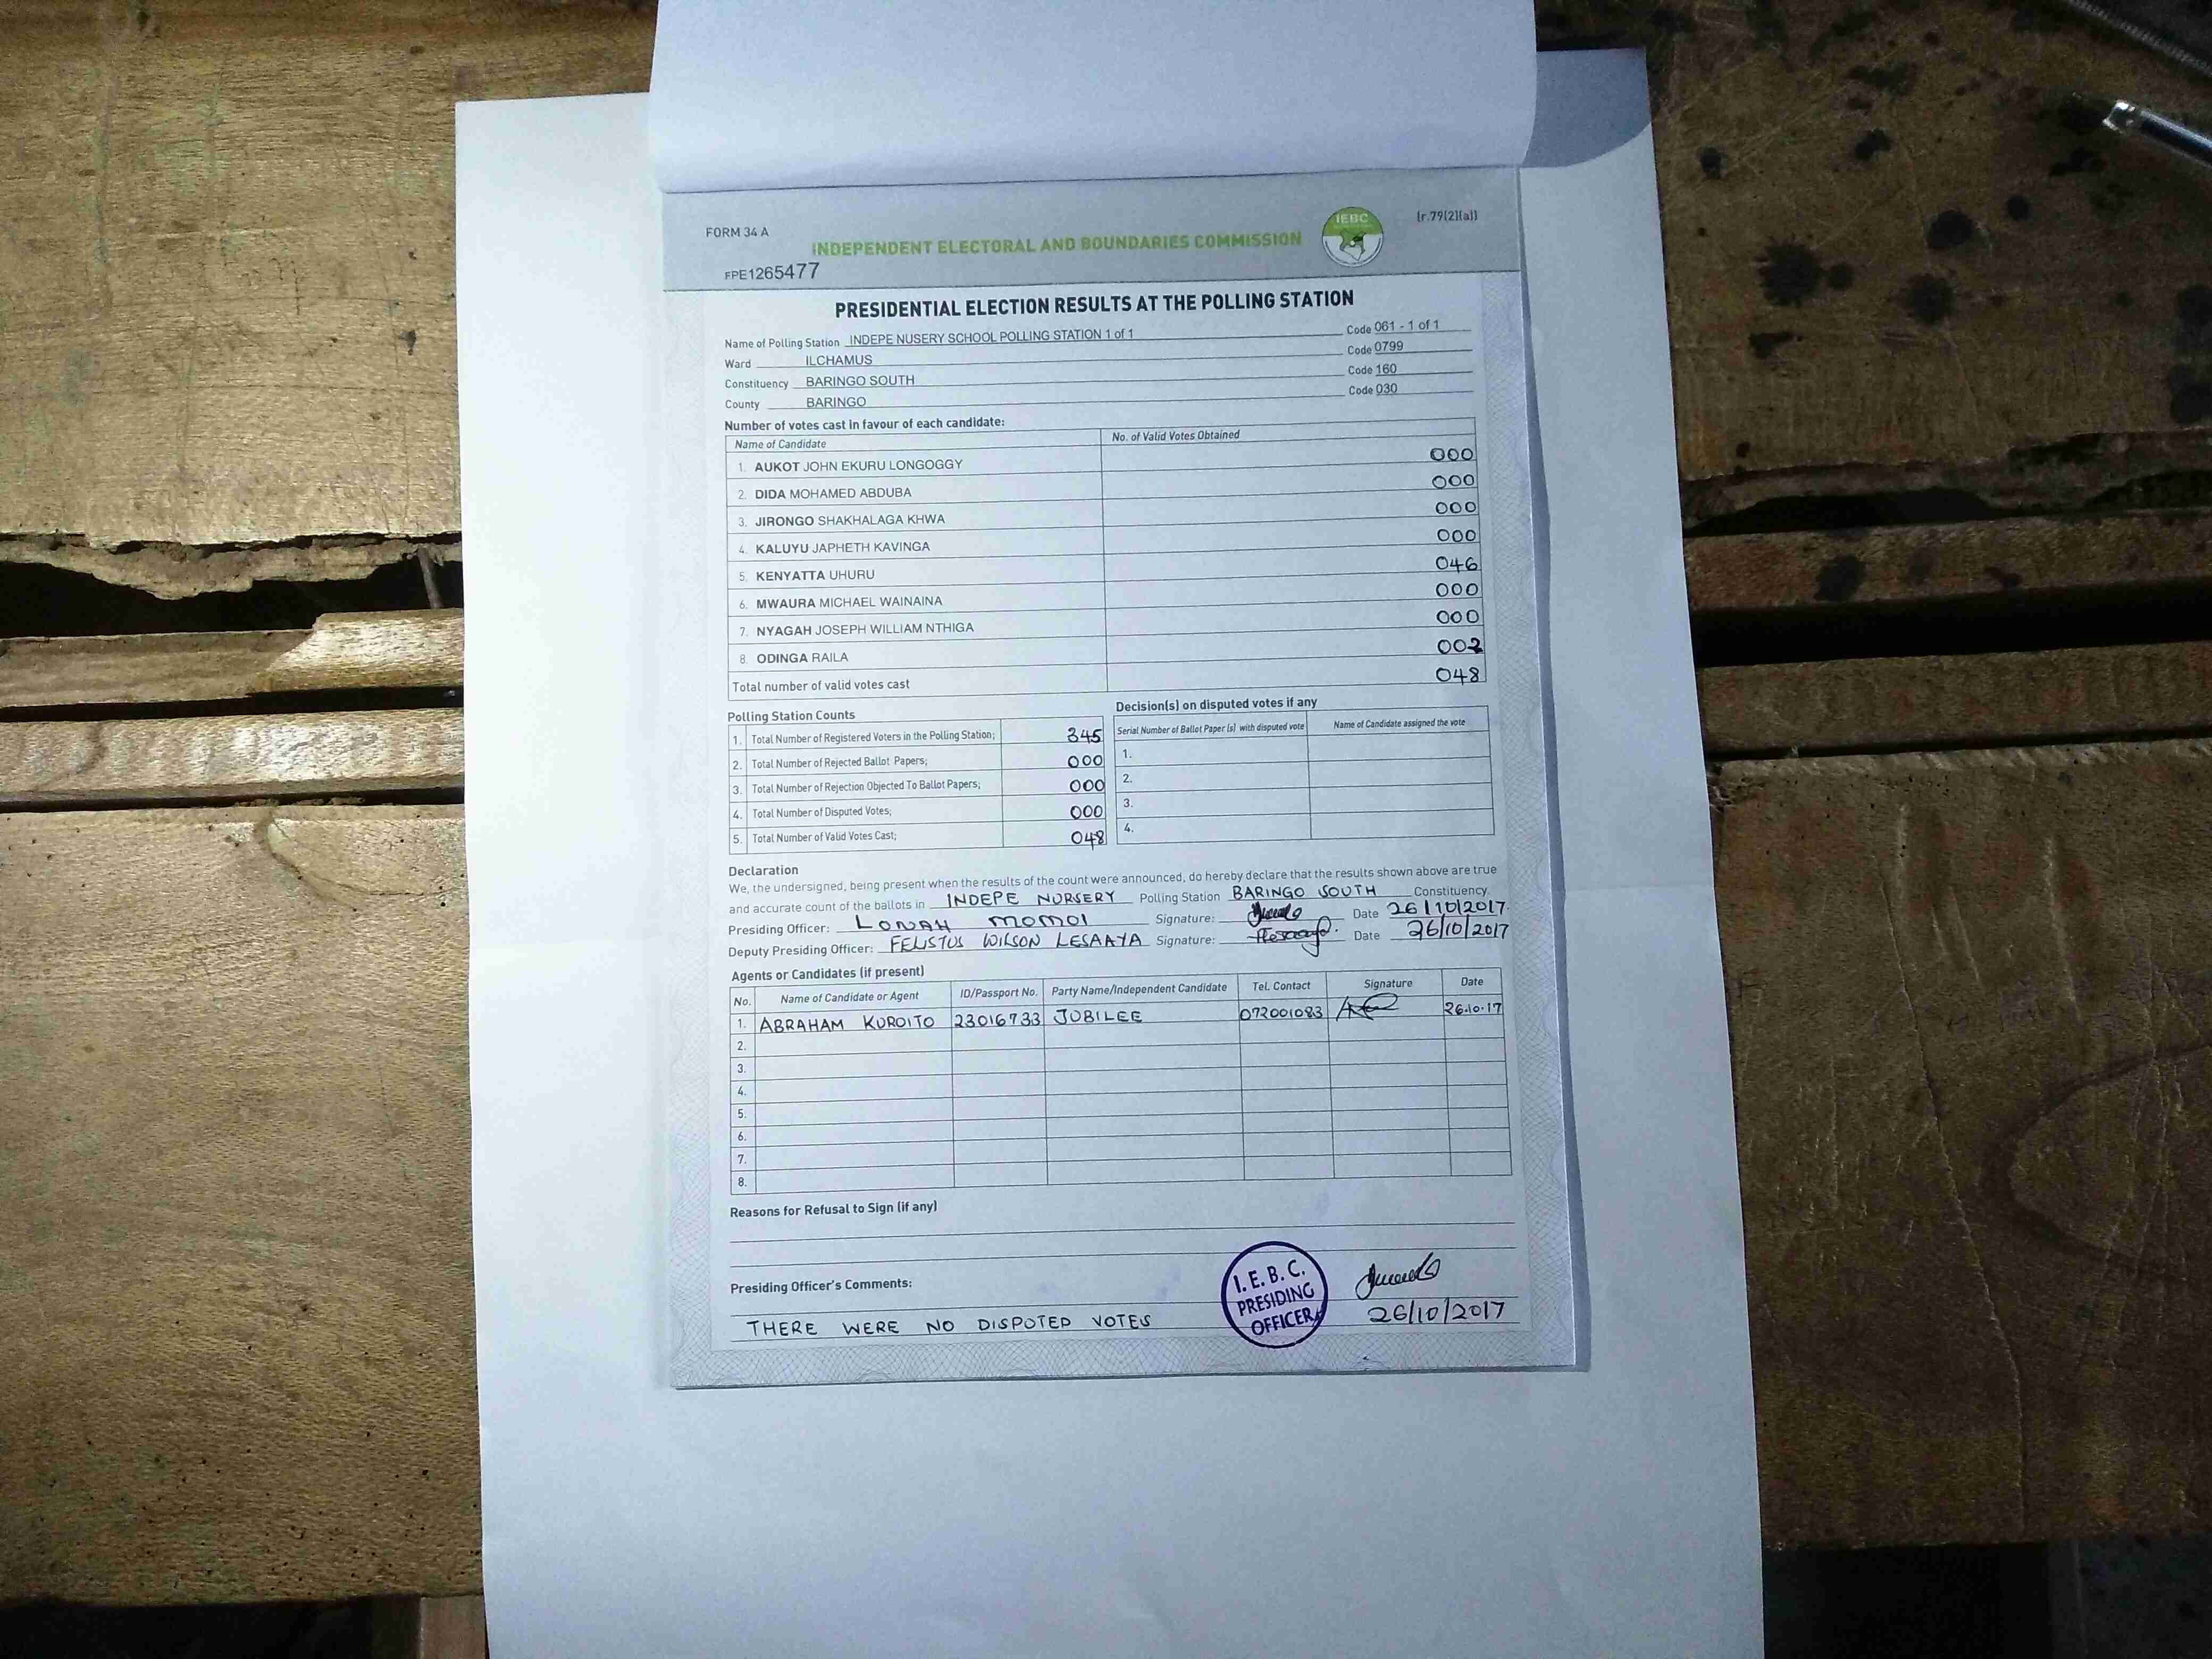 FORM 34 A
IEBC
(r.79(2)(a))
INDEPENDENT ELECTORAL AND BOUNDARIES COMMISSION
FPE1265477
PRESIDENTIAL ELECTION RESULTS AT THE POLLING STATION
Name of Polling Station INDEPE NUSERY SCHOOL POLLING STATION 1 of 1 Code 061 - 1 of 1
Ward ILCHAMUS Code 0799
Constituency BARINGO SOUTH Code 160
County BARINGO Code 030
Number of votes cast in favour of each candidate:
Name of Candidate No. of Valid Votes Obtained
1. AUKOT JOHN EKURU LONGOGGY 000
2. DIDA MOHAMED ABDUBA 000
3. JIRONGO SHAKHALAGA KHWA 000
4. KALUYU JAPHETH KAVINGA 000
5. KENYATTA UHURU 046
6. MWAURA MICHAEL WAINAINA 000
7. NYAGAH JOSEPH WILLIAM NTHIGA 000
8. ODINGA RAILA 002
Total number of valid votes cast 048
Polling Station Counts
1. Total Number of Registered Voters in the Polling Station; 345
2. Total Number of Rejected Ballot Papers; 000
3. Total Number of Rejection Objected To Ballot Papers; 000
4. Total Number of Disputed Votes; 000
5. Total Number of Valid Votes Cast; 048
Decision(s) on disputed votes if any
Serial Number of Ballot Paper (s) with disputed vote Name of Candidate assigned the vote
1.
2.
3.
4.
Declaration
We, the undersigned, being present when the results of the count were announced, do hereby declare that the results shown above are true
and accurate count of the ballots in INDEPE NURSERY Polling Station BARINGO SOUTH Constituency.
Presiding Officer: LONAH MOMOI Signature: Date 26/10/2017.
Deputy Presiding Officer: FELISTUS WILSON LESAAYA Signature: Date 26/10/2017
Agents or Candidates (if present)
No. Name of Candidate or Agent ID/Passport No. Party Name/Independent Candidate Tel. Contact Signature Date
1. ABRAHAM KUROITO 23016733 JUBILEE 072001083 26.10.17
2.
3.
4.
5.
6.
7.
8.
Reasons for Refusal to Sign (if any)
Presiding Officer's Comments:
THERE WERE NO DISPOTED VOTES
I.E.B.C.
PRESIDING
OFFICER
26/10/2017